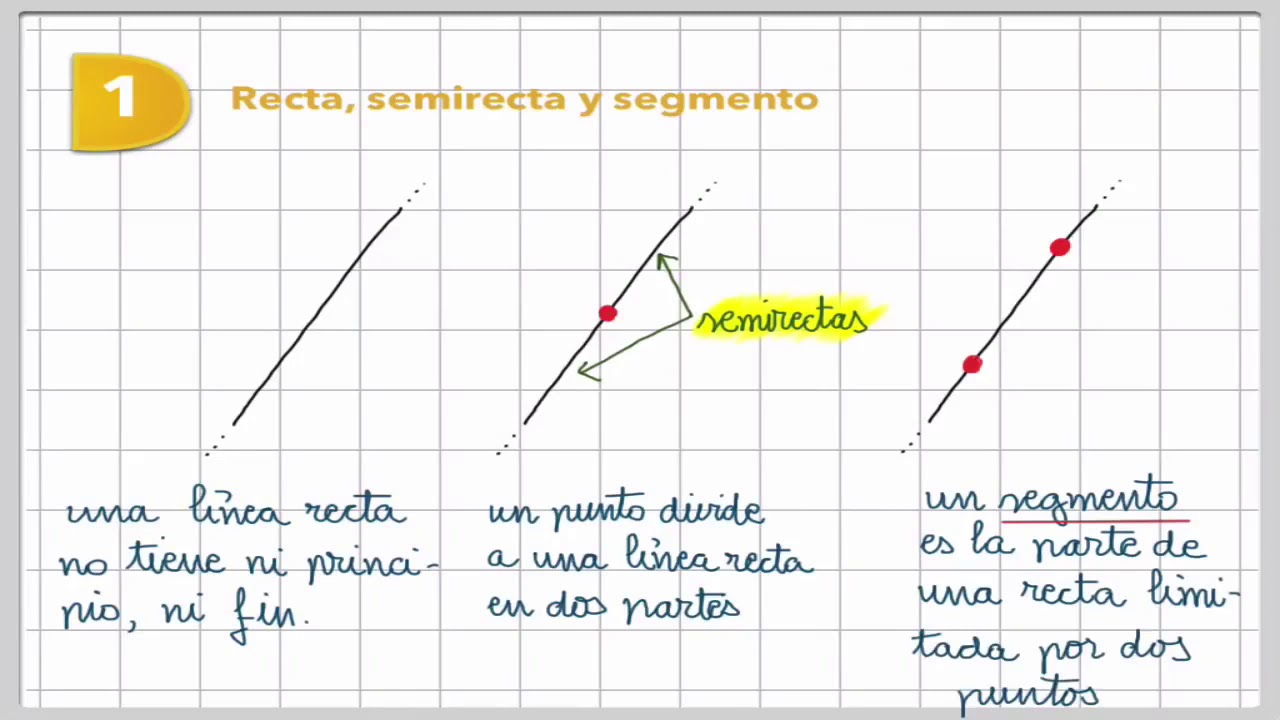 1
Recta, semirecta y segmento
semirectas
una línea recta
no tiene ni princi-
pio, ni fin.
un punto divide
a una línea recta
en dos partes
un segmento
es la parte de
una recta limi-
tada por dos
puntos